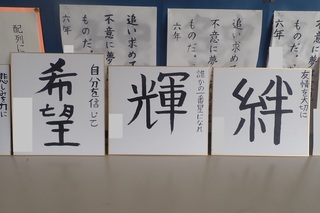 追い求めて
不意に夢
ものだ。
六年
追い求めて
不意に夢
ものだ。
六年
配列に
友情を大切に
絆
誰かの一番星になれ
輝
自分を信じて
希望
悲しみを力に